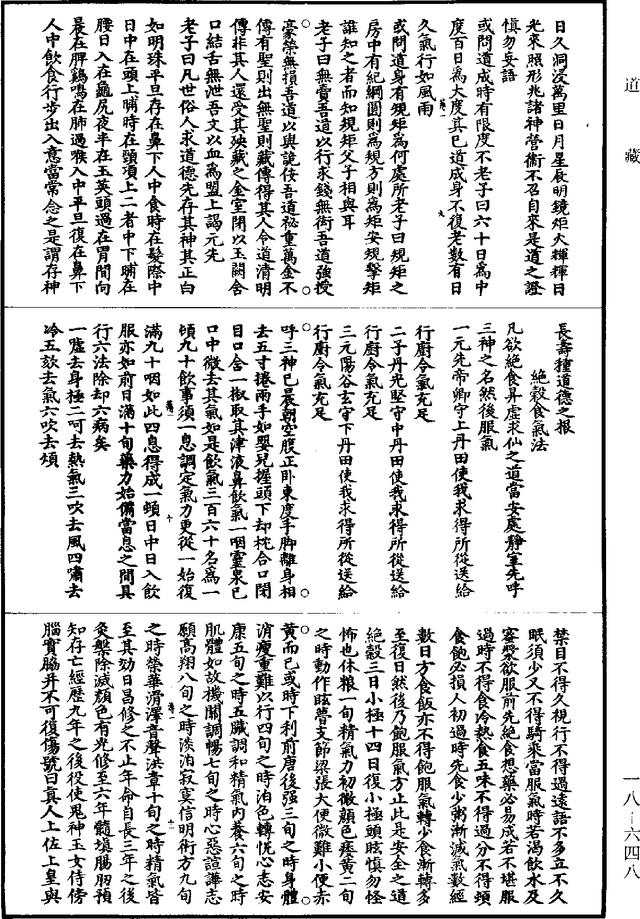 道藏
日久洞浸萬里日月星辰明鏡炬火輝輝日
光來照形兆諸神營衞不召自來是道之證
慎勿妄語
或問道成時有限度不老子曰六十日爲中
度百日爲大度真已道成身不復老數有日
久氣行如風雨
或問道身有規矩爲何處所老子曰規矩之
房中有紀綱圓則爲規方則爲矩安規擊矩
誰知之者而知規矩父子相與耳
老子曰無賣吾道以行求錢無衒吾道強授
豪榮無損吾道以與詭佞吾道祕重萬金不
傳有聖則出無聖則藏傳得其人令道清明
傳非其人還受其殃藏之金室閉以玉關含
口結舌無泄吾文以血爲盟上謁元先
老子曰凡世俗人求道德先存其神其正白
如明珠平旦存在鼻下人中食時在髮際中
日中在頭上晡時在頸項上二者中下晡在
腰日入在龜尻夜半在玉莖頭過在胃間向
晨在脾鷄鳴在肺過喉入中平旦復在鼻下
人中飲食行步出入意當常念之是謂存神
長壽種道德之根
絶穀食氣法
凡欲絶食昇虚求仙之道當安處靜室先呼
三神之名然後服氣
一元先帝卿守上丹田使我求得所從送給
行廚令氣充足
二子丹光堅守中丹田使我求得所從送給
行廚令氣充足
三元陽谷玄守下丹田使我求得所從送給
行廚令氣充足
呼三神已晨朝空腹正卧東度手脚離身相
去五寸捲兩手如嬰兒握頭下却枕合口閉
目口含一椒取其津液鼻飲氣一咽靈泉已
口中微去其氣如是飲氣三百六十名爲一
頓九十飲事須一息調定氣力更從一始復
滿九十咽如此四息得成一頓日中日入飲
服亦如前日滿十旬藥力始備當息之間具
行六法除却六病矣
一噓去身極二呵去熱氣三吹去風四嘯去
冷五欬去氣六吹去煩
禁目不得久視行不得過遠語不多立不久
眠須少又不得騎乘當服氣時若渴飲水及
審檠欲服前先絶食想藥必易成若不堪服
過時不得食冷熱食五味不得過分不得頓
食飽必損人初過時先食少粥漸減氣數經
數日方食飯亦不得飽服氣轉少食漸轉多
至復日然後乃飽服氣方止此是安全之道
絶穀三日小極十四日復小極頭眩慎勿怪
怖也休粮一旬精氣力初微顔色痿黄二旬
之時動作眩瞢支節梁張大便微難小便赤
黄而已或時下利前唐後强三旬之時身體
消瘦重難以行四旬之時泊色轉悦心志安
康五旬之時五臟調和精氣内養六旬之時
肌體如故機關調暢七旬之時心惡諠譁志
願高翔八旬之時淡泊寂寞信明術方九旬
之時榮華滑澤音聲洪章十旬之時精氣皆
至其効日昌修之不止年命自長三年之後
灸瘢除滅顔色有光修至六年髓填腸肕預
知存亡經歷九年之後役使鬼神玉女侍傍
腦實脇并不可復傷號曰真人上佐上皇與
一八－六四八